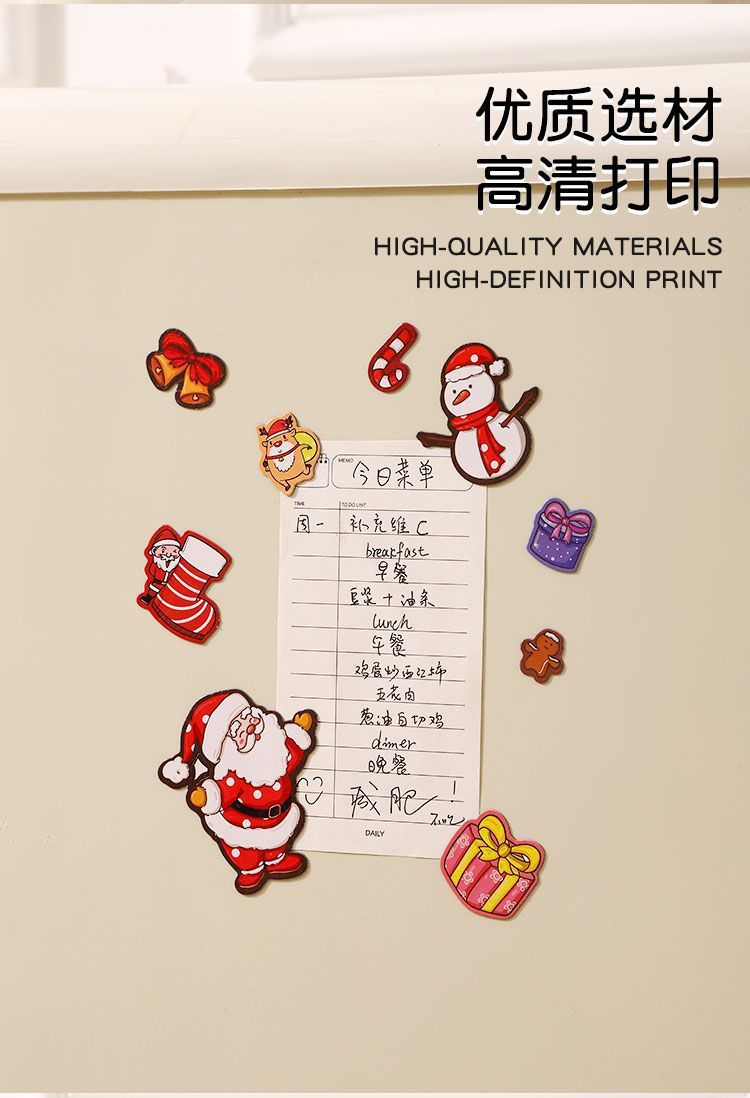 优质选材
高清打印
HIGH-QUALITY MATERIALS
HIGH-DEFINITION PRINT
MEMO
今日菜单
TIME TO DO LIST
周一 补充维C
breakfast
早餐
豆浆+油条
lunch
午餐
鸡蛋炒西红柿
五花肉
葱油白切鸡
dinner
晚餐
减肥!
不吃
DAILY